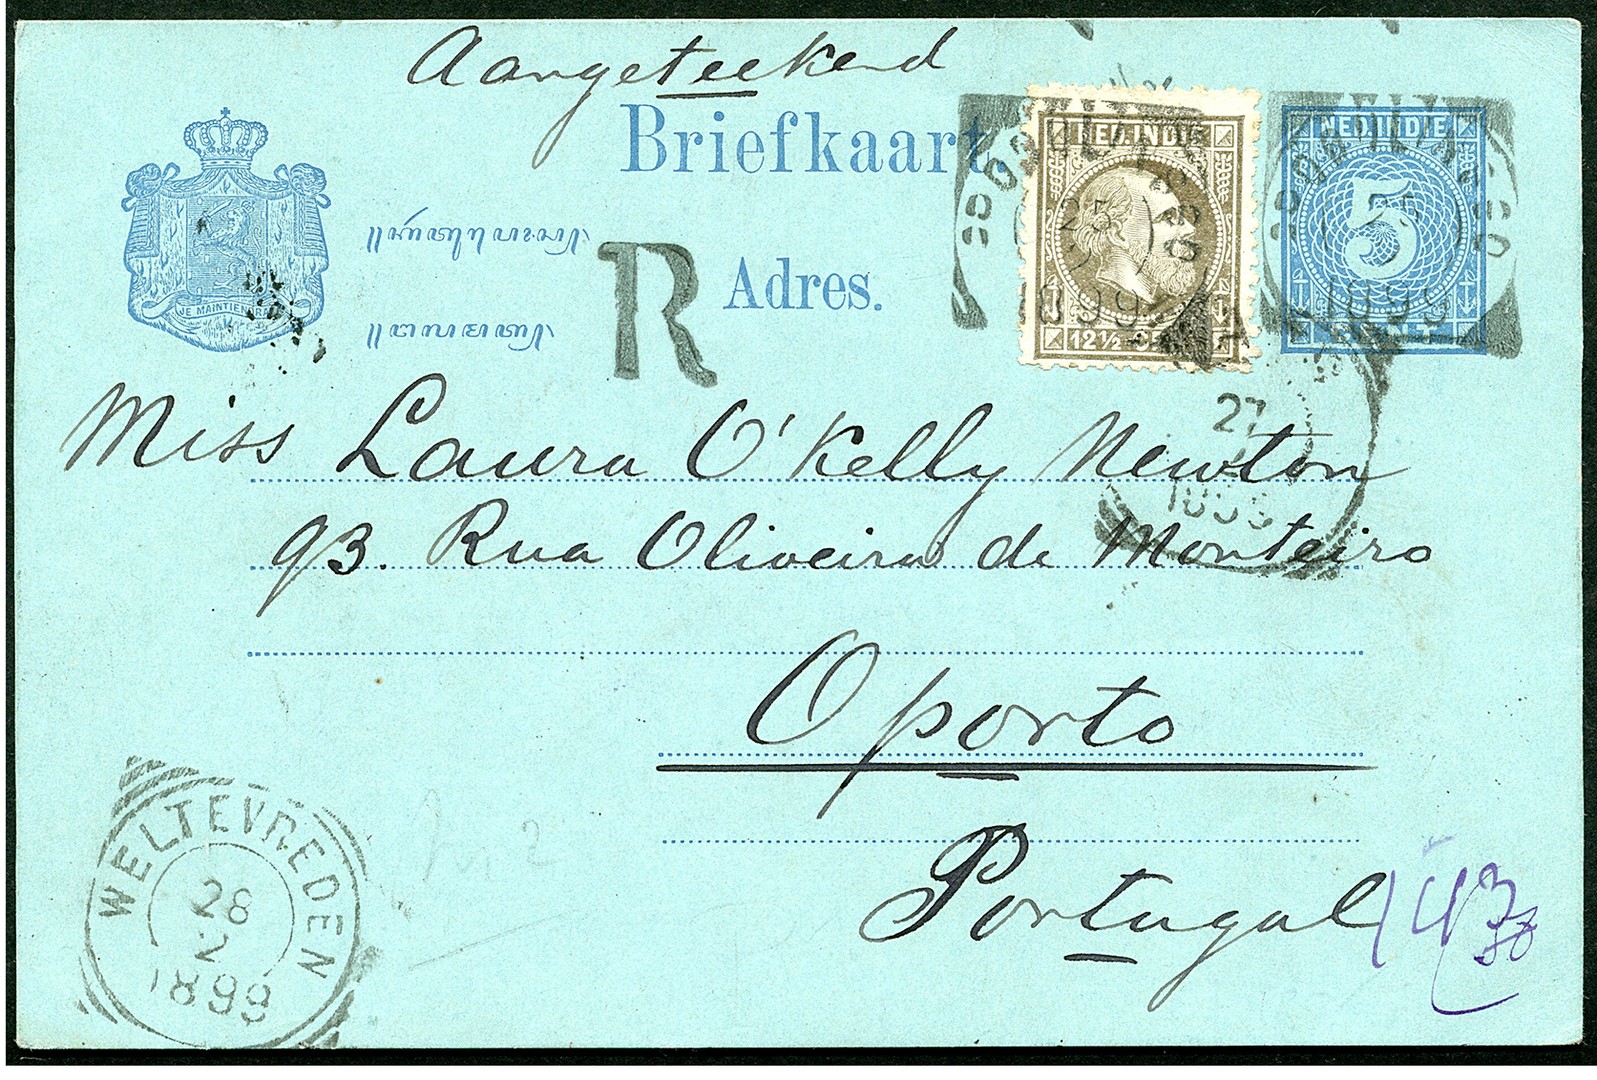 Aangeteekend
Briefkaart.
NED. INDIE
NED. INDIE
5
25
1899
1899
R
Adres.
JE MAINTIENDRAI
12½
Miss Laura O'Kelly Newton
27
93. Rua Oliveira de Monteiro
Oporto
Portugal
WELTEVREDEN
28
2
1899